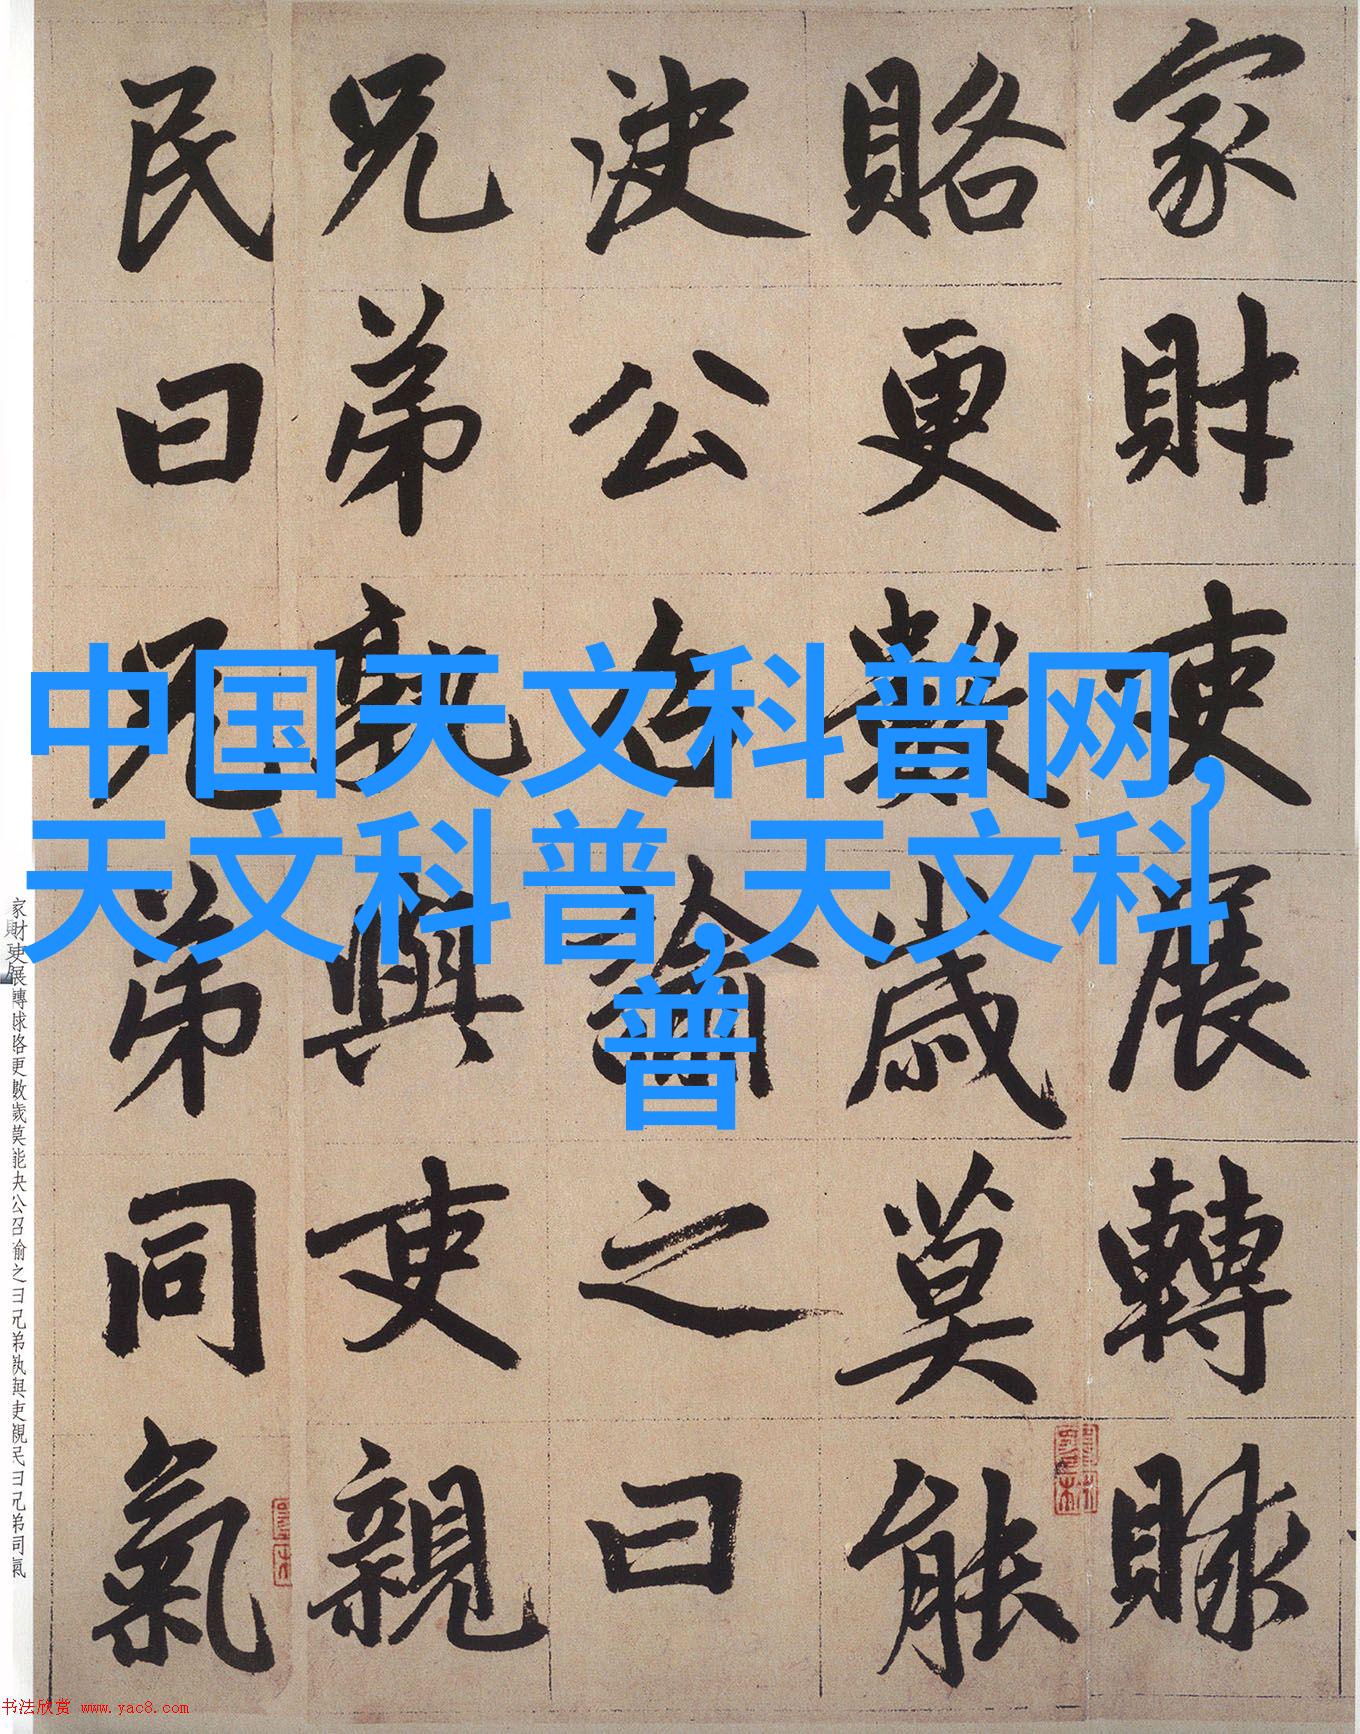 家財吏展轉賕
賂更數歲莫能
決公迨諭之曰
兄弟孰與吏親
民曰兄弟同氣
中国天文科普网,
天文科普,天文科
普
家財吏展轉賕賂更數歲莫能決公召諭之曰兄弟孰與吏親民曰兄弟同氣
书法欣赏 www.yac8.com